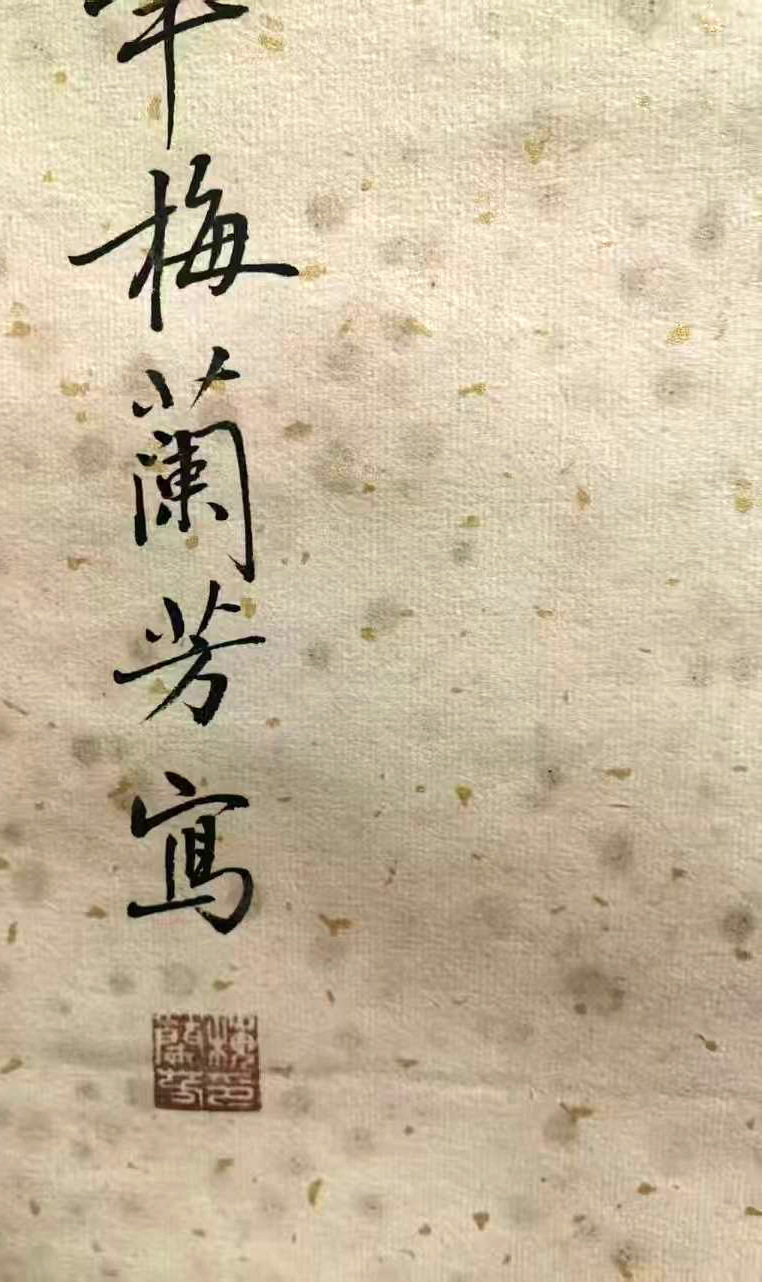 梅蘭芳寫
梅蘭芳印